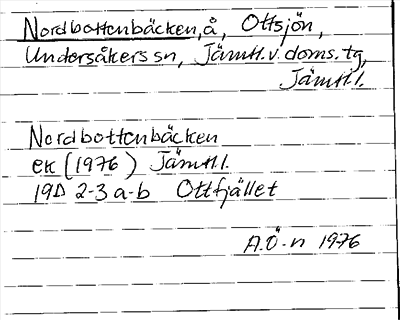 Nordbottenbäcken, å, Ottsjön,
Undersåkers sn, Jämtl. v. doms. tg,
Jämtl. l.
Nordbottenbäcken
ek (1976) Jämtl l.
19D 2-3 a-b Ottfjället
A.Ö-n 1976